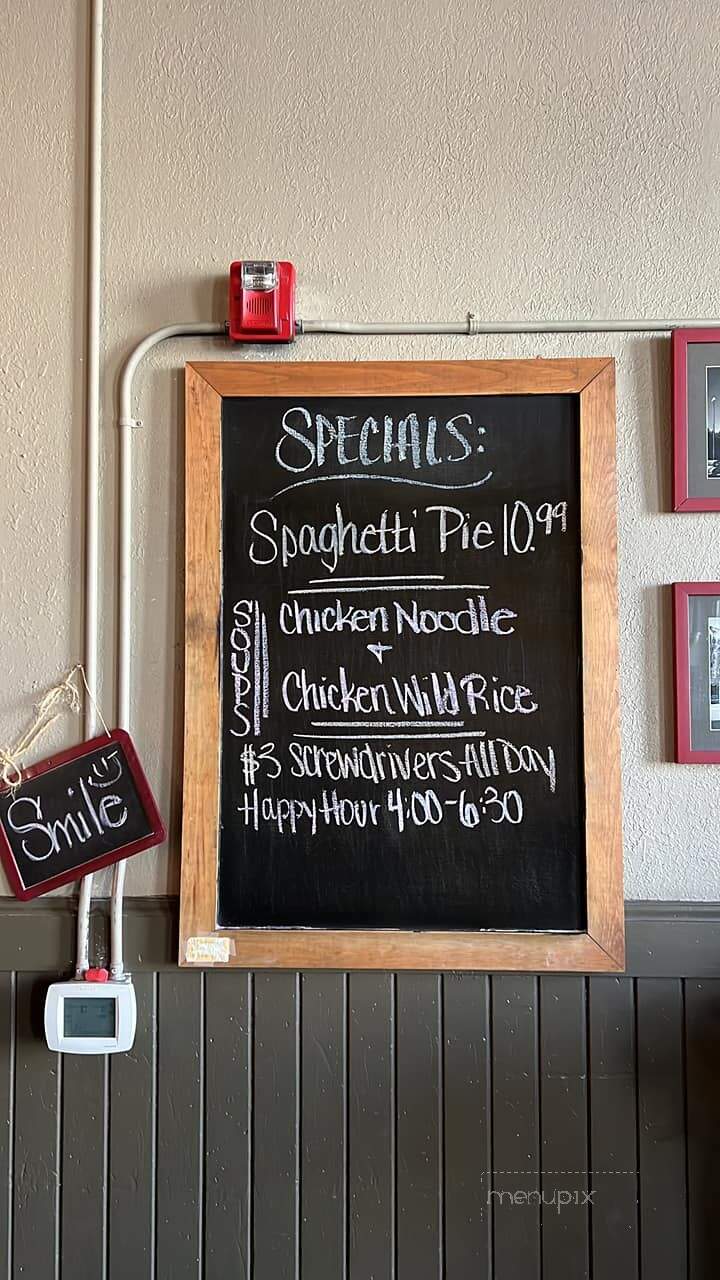 SPECIALS:
Spaghetti Pie 10.99
SOUPS
Chicken Noodle
+
Chicken Wild Rice
$3 Screwdrivers All Day
Happy Hour 4:00-6:30
Smile
menupix